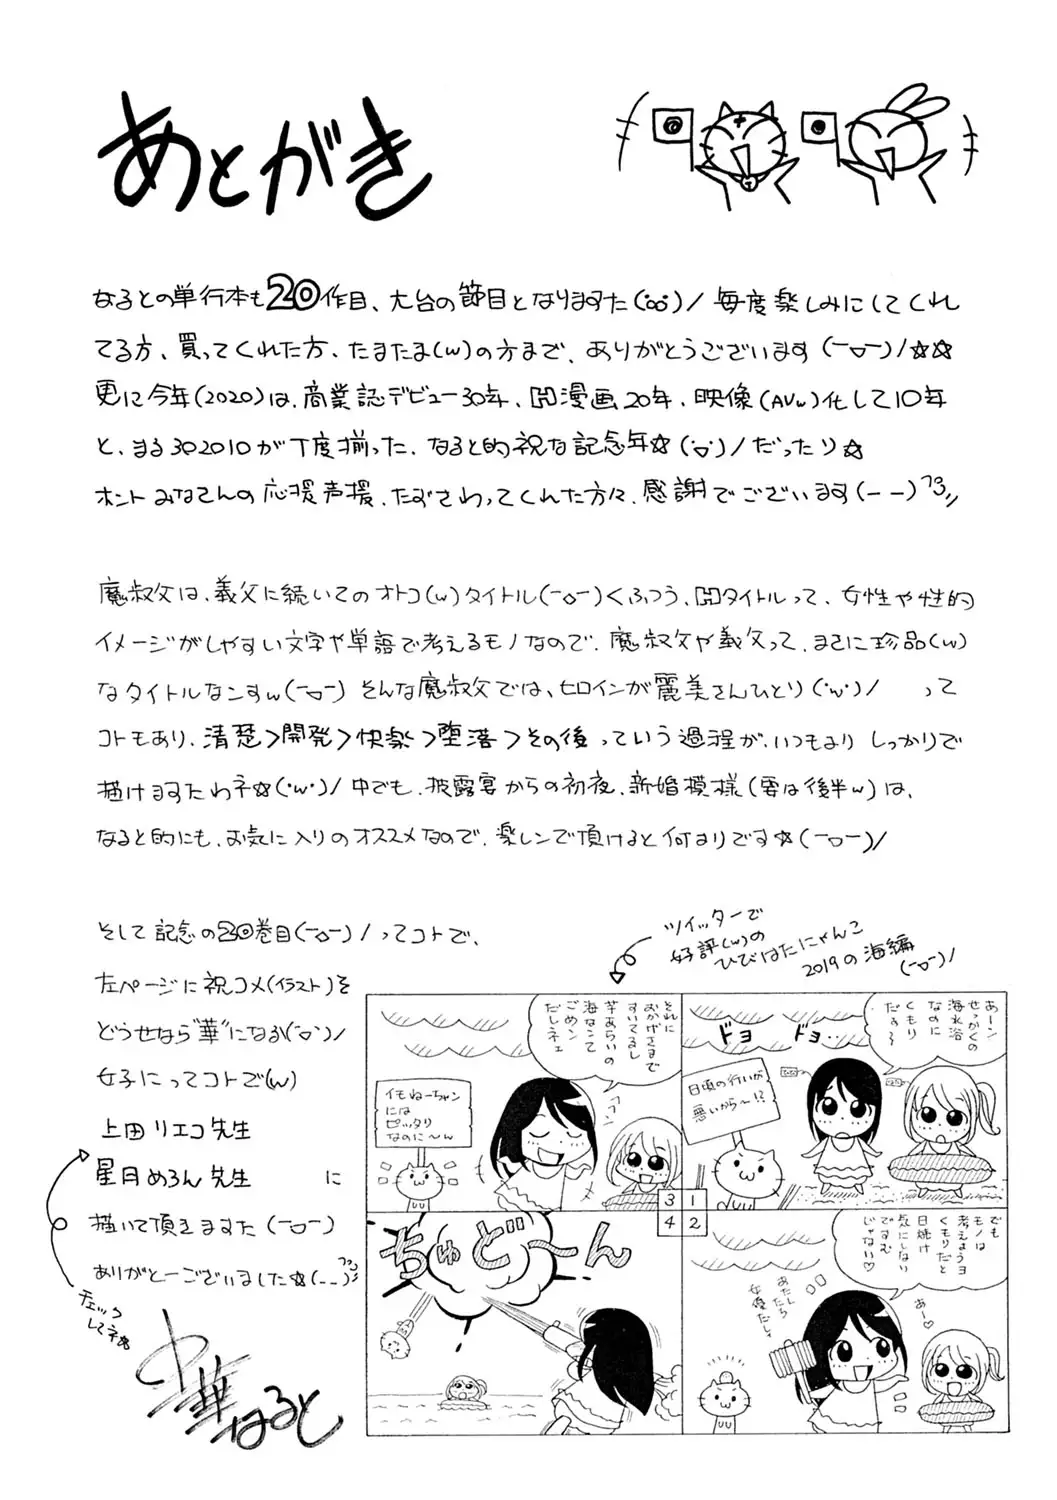 あとがき
なるとの単行本も20作目、大台の節目となりますた(°o°)/ 毎度楽しみにしてくれ
てる方、買ってくれた方、たまたま(w)の方まで、ありがとうございます(ー▽ー)/☆☆
更に今年(2020)は、商業誌デビュー30年、H漫画20年、映像(AVw)化して10年
と、まる302010が丁度揃った、なると的祝な記念年☆(・▽・)/だったり☆
ホントみなさんの応援声援、たずさわってくれた方々、感謝でございます(ーー)フコ//
魔叔父は、義父に続いてのオトコ(w)タイトル(ー▽ー)くふつう、Hタイトルって、女性や性的
イメージがしやすい文字や単語で考えるモノなので、魔叔父や義父って、まさに珍品(w)
なタイトルなンすw(ー▽ー) そんな魔叔父では、ヒロインが麗美さんひとり(・w・)/ って
コトもあり、清楚>開発>快楽>堕落>その後っていう過程が、いつもより しっかりで
描けますたわネ☆(・w・)/ 中でも、披露宴からの初夜、新婚模様(要は後半w)は、
なると的にも、お気に入りのオススメなので、楽しンで頂けると何よりです☆(ー▽ー)/
そして記念の20巻目(ー▽ー)/ってコトで、
左ページに祝コメ(イラスト)を
どうせなら"華"になる(・▽・)/
女子にってコトで(w)
上田リエコ先生
星月めろん先生 に
描いて頂きますた(ー▽ー)
ありがとーございました☆(--)フコ
チェック
してネ☆
中華なると
ツイッターで
好評(w)の
ひびはたにゃんこ
2019の海編
(ー▽ー)/
1
あーン
せっかくの
海水浴
なのに
くもり
だぁ〜
ドョ ドョ・・
日頃の行いが
悪いから〜!?
2
でも
モノは
考えようヨ
くもりだと
日焼け
気にしない
ですむ
じゃない♡
あー♡
あたしたち
女優だしィ
3
それに
おかげさまで
すいてるし
芋あらいの
海なンて
ごめン
だしネェ
フフン
イモねーちゃン
には
ピッタリ
なのに〜ん
4
ちゅど〜ん